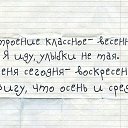 троение классное- весенн
Я иду, улыбки не тая.
еня сегодня- воскресен
ригу, что осень и сред